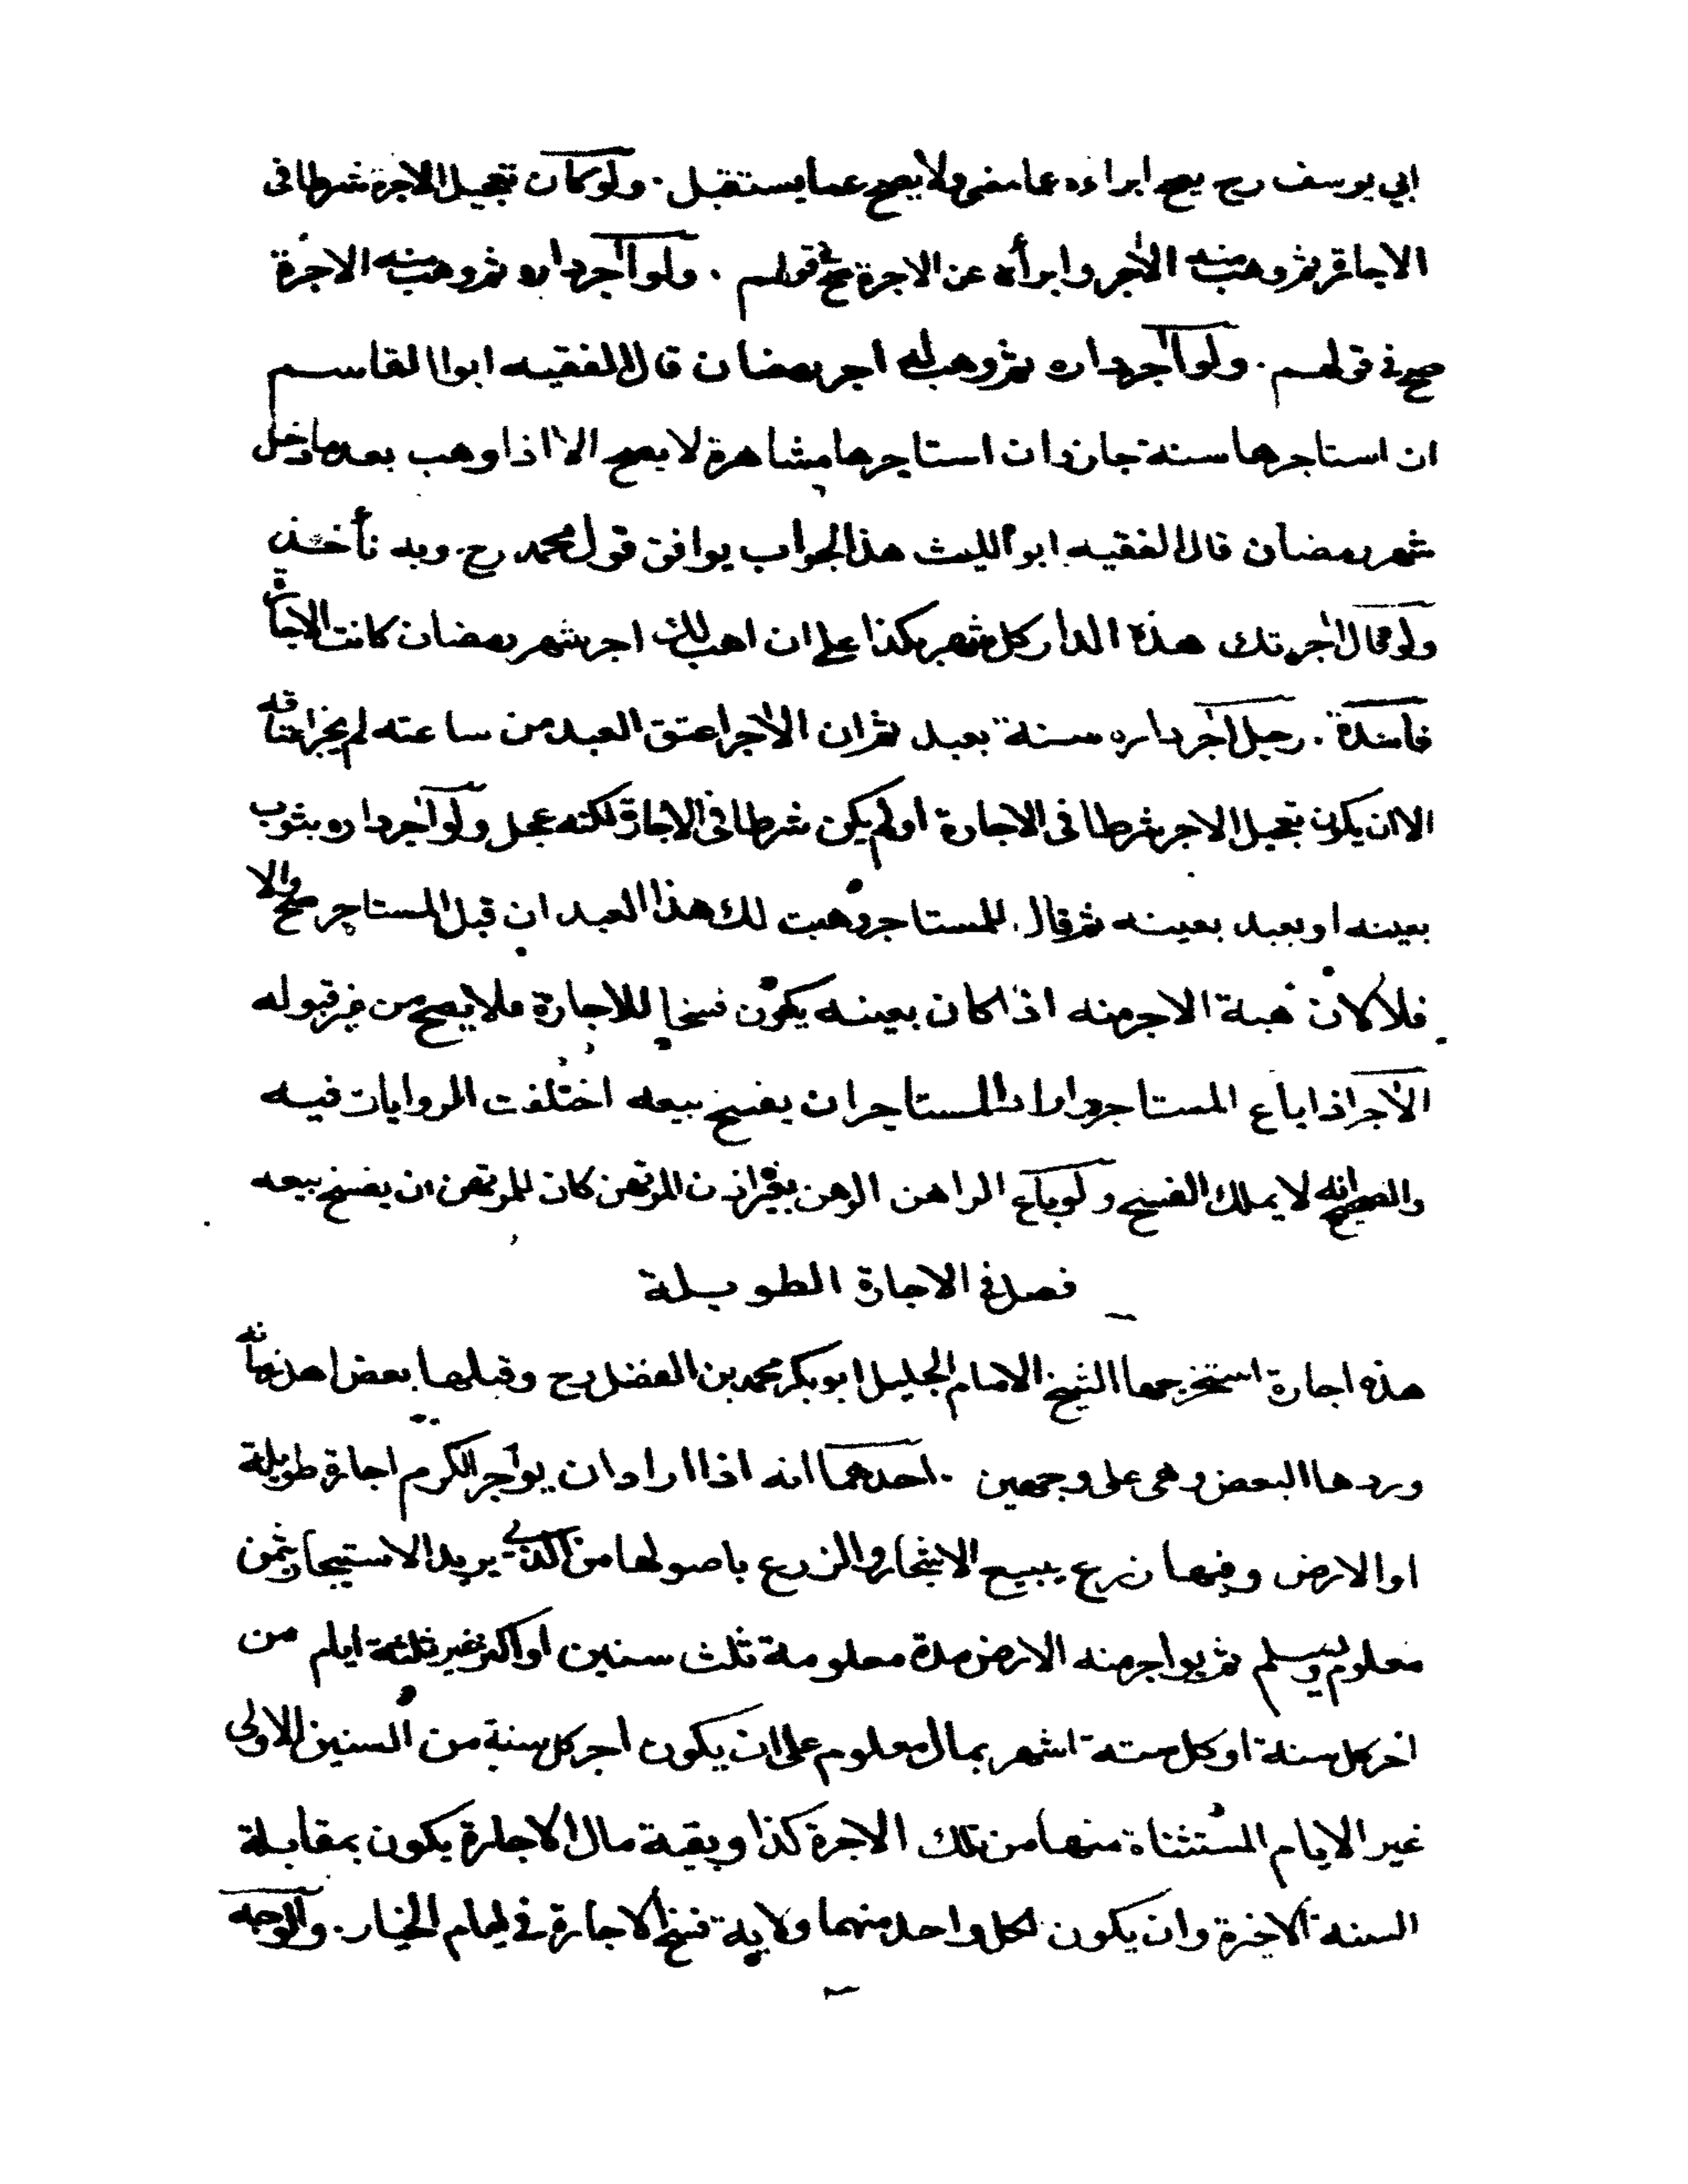 ابي يوسف رح يصح ابراءه عما مضى ولا يصح عما يستقبل . ولو كان تعجيل الاجرة شرطا فى
الاجارة ثم وهب منه الآجر وابرأه عن الاجرة صح فى قولهم . ولو آجر داره ثم وهب منه الاجرة
صح فى قولهم . ولو آجر داره ثم وهب له اجر رمضان قال الفقيه ابو القاسم
ان استاجرها سنة جاز وان استاجرها مشاهرة لا يصح الا اذا وهب بعد ما دخل
شهر رمضان قال الفقيه ابو الليث هذا الجواب يوافق قول محمد رح وبه نأخذ
ولو قال آجرتك هذه الدار كل شهر بكذا على ان اهب لك اجر شهر رمضان كانت الاجارة
فاسدة . رجل آجر داره سنة بعبد ثم ان الآجر اعتق العبد من ساعته لم يجز اعتاقه
الا ان يكون تعجيل الاجر شرطا فى الاجارة او لم يكن شرطا فى الاجارة لكنه عجل ولو آجر داره بثوب
بعينه او بعبد بعينه ثم قال للمستاجر وهبت لك هذا العبد ان قبل المستاجر صح والا
فلا لان هبة الاجر منه اذا كان بعينه يكون فسخا للاجارة فلا يصح من غير قبوله
الآجر اذا باع المستاجر واراد المستاجر ان يفسخ بيعه اختلفت الروايات فيه
والصحيح انه لا يملك الفسخ ولو باع الراهن الرهن بغير اذن المرتهن كان للمرتهن ان يفسخ بيعه
فصل فى الاجارة الطويلة
هذه اجارة استخرجها الشيخ الامام الجليل ابو بكر محمد بن الفضل رح وقبلها بعض اهل زمانه
وردها البعض وهى على وجهين . احدهما انه اذا اراد ان يواجر الكرم اجارة طويلة
او الارض وفيها زرع يبيع الاشجار والزرع باصولها من الذى يريد الاستيجار بثمن
معلوم ويسلم ثم يواجر منه الارض مدة معلومة ثلث سنين او اكثر غير ثلثة ايام من
اخر كل سنة او كل ستة اشهر بمال معلوم على ان يكون اجر كل سنة من السنين الاولى
غير الايام المستثناة منها من تلك الاجرة كذا وبقية مال الاجارة يكون بمقابلة
السنة الاخيرة وان يكون لكل واحد منهما ولاية فسخ الاجارة فى ايام الخيار . والوجه